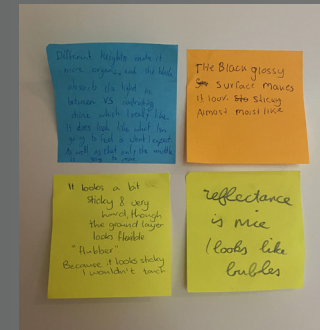 Different heights make it
more organic, and the blocks
absorbs the light as
between VS contrasting
shine which looks like
It does look like what
going to feel is what I expect
as well as that only the middle
is
The Black glossy
surface makes
it look sticky
Almost moist like
It looks a bit
sticky & very
hard, though
the ground layer
looks flexible
"flubber"
Because it looks sticky
I wouldn't touch
reflectance
is nice
/ looks like
bubbles